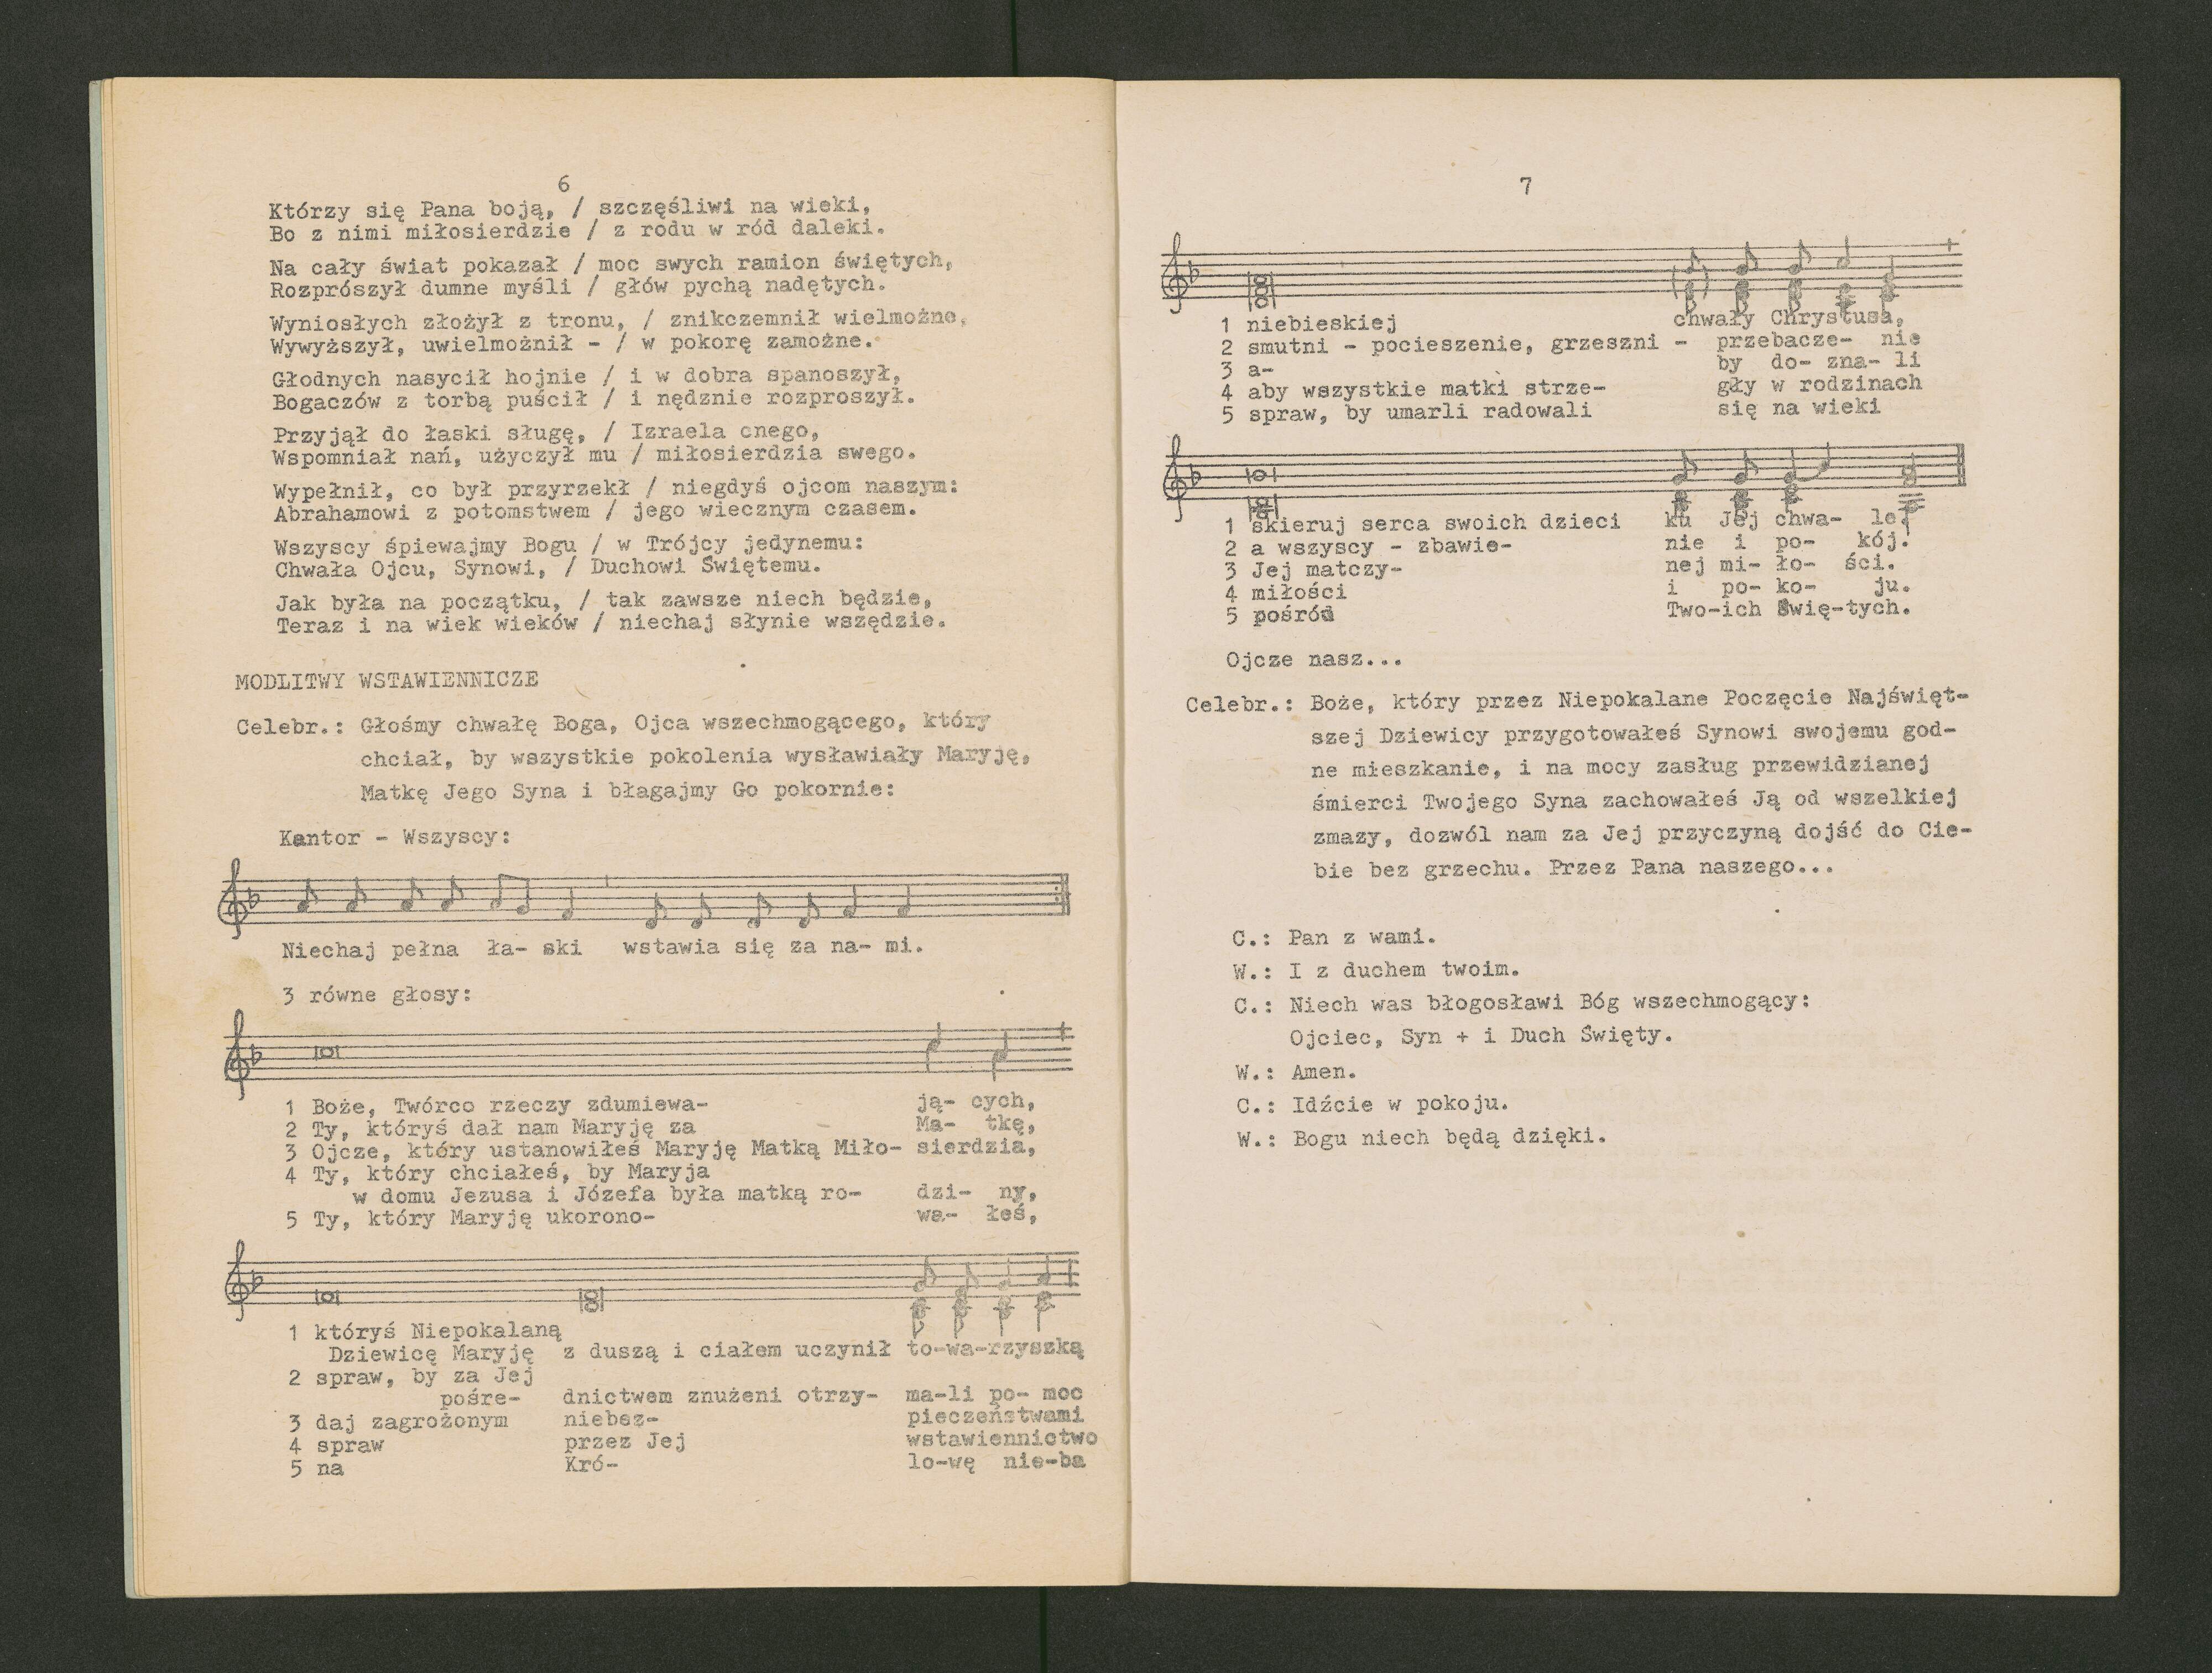 6
Którzy się Pana boją, / szczęśliwi na wieki,
Bo z nimi miłosierdzie / z rodu w ród daleki.
Na cały świat pokazał / moc swych ramion świętych,
Rozprószył dumne myśli / głów pychą nadętych.
Wyniosłych złożył z tronu, / znikczemnił wielmożne,
Wywyższył, uwielmożnił - / w pokorę zamożne.
Głodnych nasycił hojnie / i w dobra spanoszył,
Bogaczów z torbą puścił / i nędznie rozproszył.
Przyjął do łaski sługę, / Izraela cnego,
Wspomniał nań, użyczył mu / miłosierdzia swego.
Wypełnił, co był przyrzekł / niegdyś ojcom naszym:
Abrahamowi z potomstwem / jego wiecznym czasem.
Wszyscy śpiewajmy Bogu / w Trójcy jedynemu:
Chwała Ojcu, Synowi, / Duchowi Świętemu.
Jak była na początku, / tak zawsze niech będzie,
Teraz i na wiek wieków / niechaj słynie wszędzie.
MODLITWY WSTAWIENNICZE
Celebr.: Głośmy chwałę Boga, Ojca wszechmogącego, który
chciał, by wszystkie pokolenia wysławiały Maryję,
Matkę Jego Syna i błagajmy Go pokornie:
Kantor - Wszyscy:
Niechaj pełna ła- ski wstawia się za na- mi.
3 równe głosy:
1 Boże, Twórco rzeczy zdumiewa- ją- cych,
2 Ty, któryś dał nam Maryję za Ma- tkę,
3 Ojcze, który ustanowiłeś Maryję Matką Miło- sierdzia,
4 Ty, który chciałeś, by Maryja
w domu Jezusa i Józefa była matką ro- dzi- ny,
5 Ty, który Maryję ukorono- wa- łeś,
1 któryś Niepokalaną
Dziewicę Maryję z duszą i ciałem uczynił to-wa-rzyszką
2 spraw, by za Jej
pośre- dnictwem znużeni otrzy- ma-li po- moc
3 daj zagrożonym niebez- pieczeństwami
4 spraw przez Jej wstawiennictwo
5 na Kró- lo-wę nie-ba
7
1 niebieskiej chwały Chrystusa,
2 smutni - pocieszenie, grzeszni - przebacze- nie
3 a- by do- zna- li
4 aby wszystkie matki strze- gły w rodzinach
5 spraw, by umarli radowali się na wieki
1 skieruj serca swoich dzieci ku Jej chwa- le.
2 a wszyscy - zbawie- nie i po- kój.
3 Jej matczy- nej mi- ło- ści.
4 miłości i po- ko- ju.
5 pośród Two-ich Świę-tych.
Ojcze nasz...
Celebr.: Boże, który przez Niepokalane Poczęcie Najświęt-
szej Dziewicy przygotowałeś Synowi swojemu god-
ne mieszkanie, i na mocy zasług przewidzianej
śmierci Twojego Syna zachowałeś Ją od wszelkiej
zmazy, dozwól nam za Jej przyczyną dojść do Cie-
bie bez grzechu. Przez Pana naszego...
C.: Pan z wami.
W.: I z duchem twoim.
C.: Niech was błogosławi Bóg wszechmogący:
Ojciec, Syn + i Duch Święty.
W.: Amen.
C.: Idźcie w pokoju.
W.: Bogu niech będą dzięki.